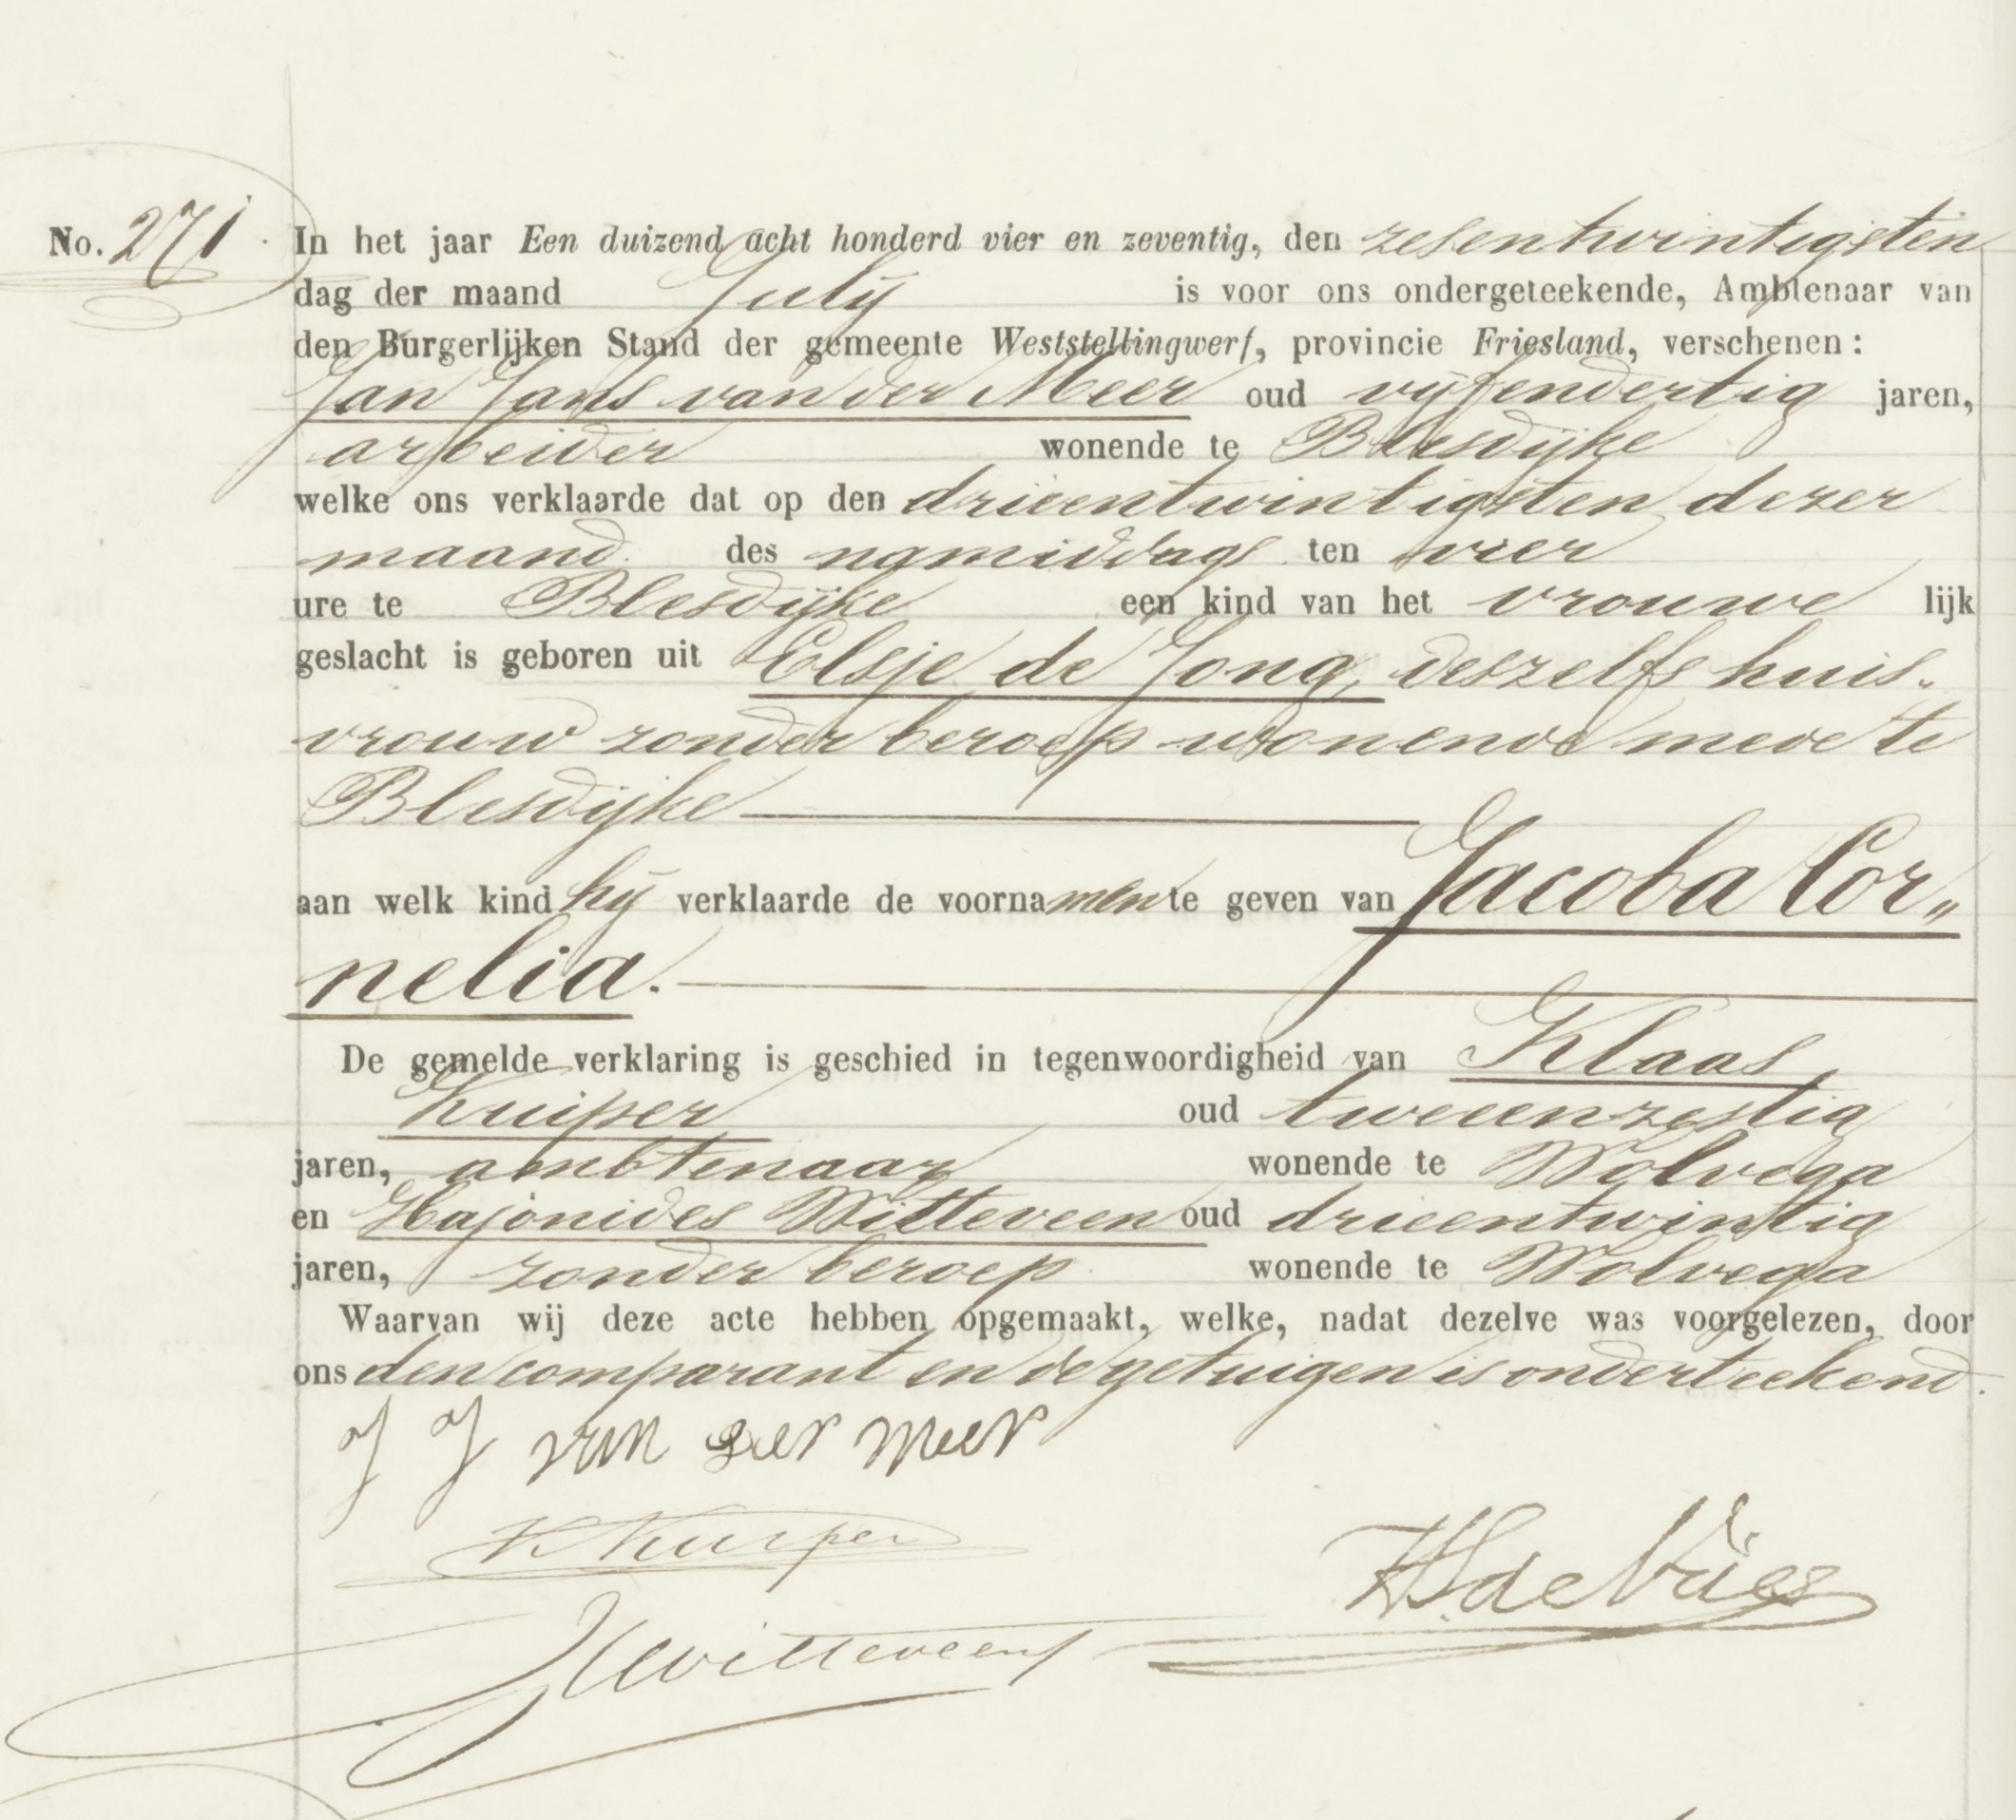 No. 271. In het jaar Een duizend acht honderd vier en zeventig, den zesentwintigsten
dag der maand Julij is voor ons ondergeteekende, Ambtenaar van
den Burgerlijken Stand der gemeente Weststellingwerf, provincie Friesland, verschenen:
Jan Jans van der Meer oud vijfendertig jaren,
arbeider wonende te Blesdijke
welke ons verklaarde dat op den drieentwintigsten dezer
maand des namiddags ten vier
ure te Blesdijke een kind van het vrouwe lijk
geslacht is geboren uit Elsje de Jong, deszelfs huis-
vrouw zonder beroep wonende mede te
Blesdijke
aan welk kind hij verklaarde de voornamen te geven van Jacoba Cor„
nelia.
De gemelde verklaring is geschied in tegenwoordigheid van Klaas
Kuiper oud tweeenzestig
jaren, ambtenaar wonende te Wolvega
en Hajonides Witteveen oud drieentwintig
jaren, zonder beroep wonende te Wolvega
Waarvan wij deze acte hebben opgemaakt, welke, nadat dezelve was voorgelezen, door
ons den comparant en de getuigen is onderteekend.
J J van der Meer
K Kuiper
HdeVries
HWitteveen